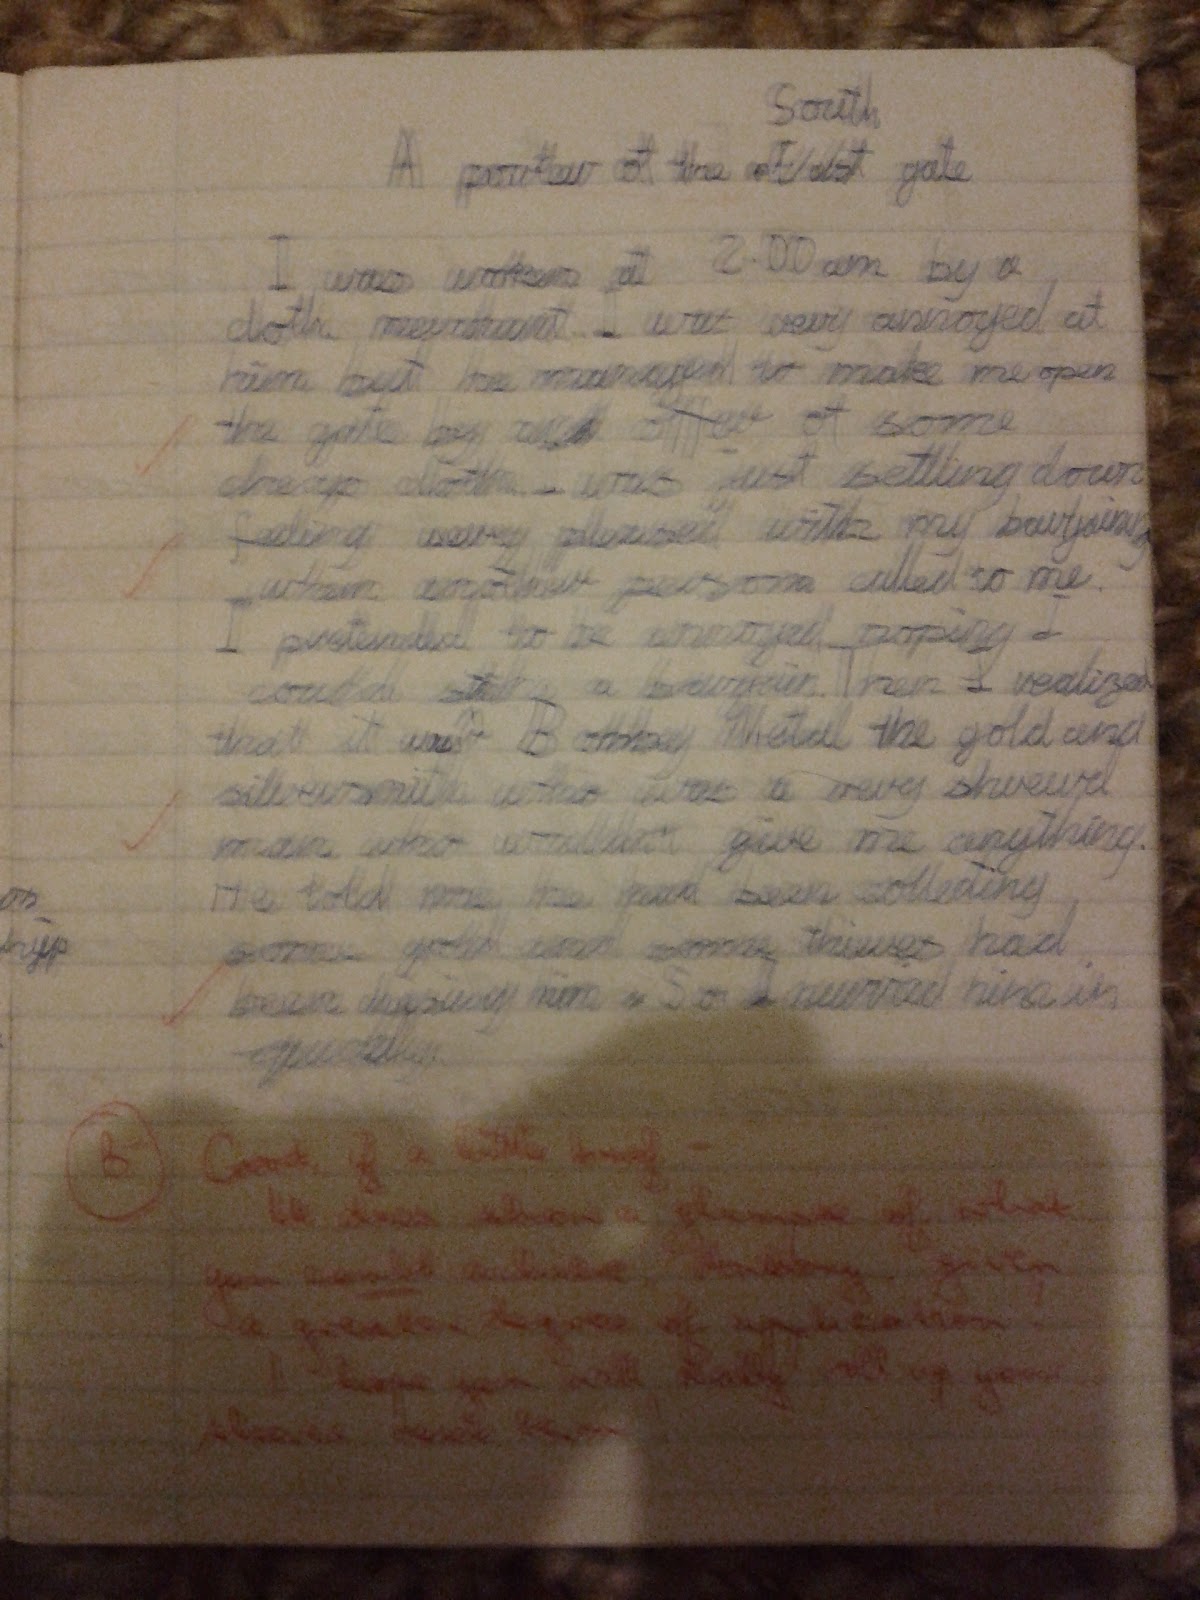 South
A porter at the gate
I was woken at 2.00 am by a
cloth merchant I was very annoyed at
him but he managed to make me open
the gate by an offer of some
cheap cloth. I was just settling down
feeling very pleased with my
when another person called to me.
I pretended to be annoyed hoping I
could strike a bargain. Then I realized
that it was Metal the gold and
silversmith who was a very shrewd
man who wouldn't give me anything.
He told me he had been collecting
some gold and some thieves had
been him. So I hurried him in
quickly.
on
B Good, if a little brief -
It does show a glimpse of what
you could achieve, given
a greater degree of application.
I hope you will really roll up your
sleeves next term